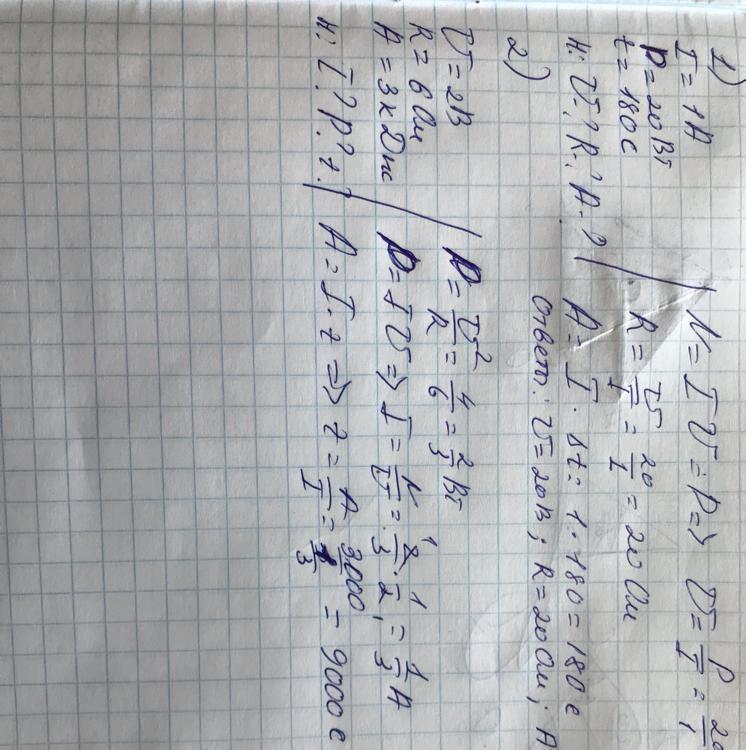 1)
I = 1A
P = 20 Вт
t = 180 с
Н: U-? R-? A-?
N = IU = P => U = P/I = 20/1
R = U/I = 20/1 = 20 Ом
A = I · Δt = 1 · 180 = 180 с
ответ: U = 20В; R = 20 Ом; A
2)
U = 2В
R = 6 Ом
A = 3 кДж
Н: I? P? t?
P = U²/R = 4/6 = 2/3 Вт
P = IU => I = N/U = 2/3 · 1/2 = 1/3 A
A = I · t => t = A/I = 3000/(1/3) = 9000 с